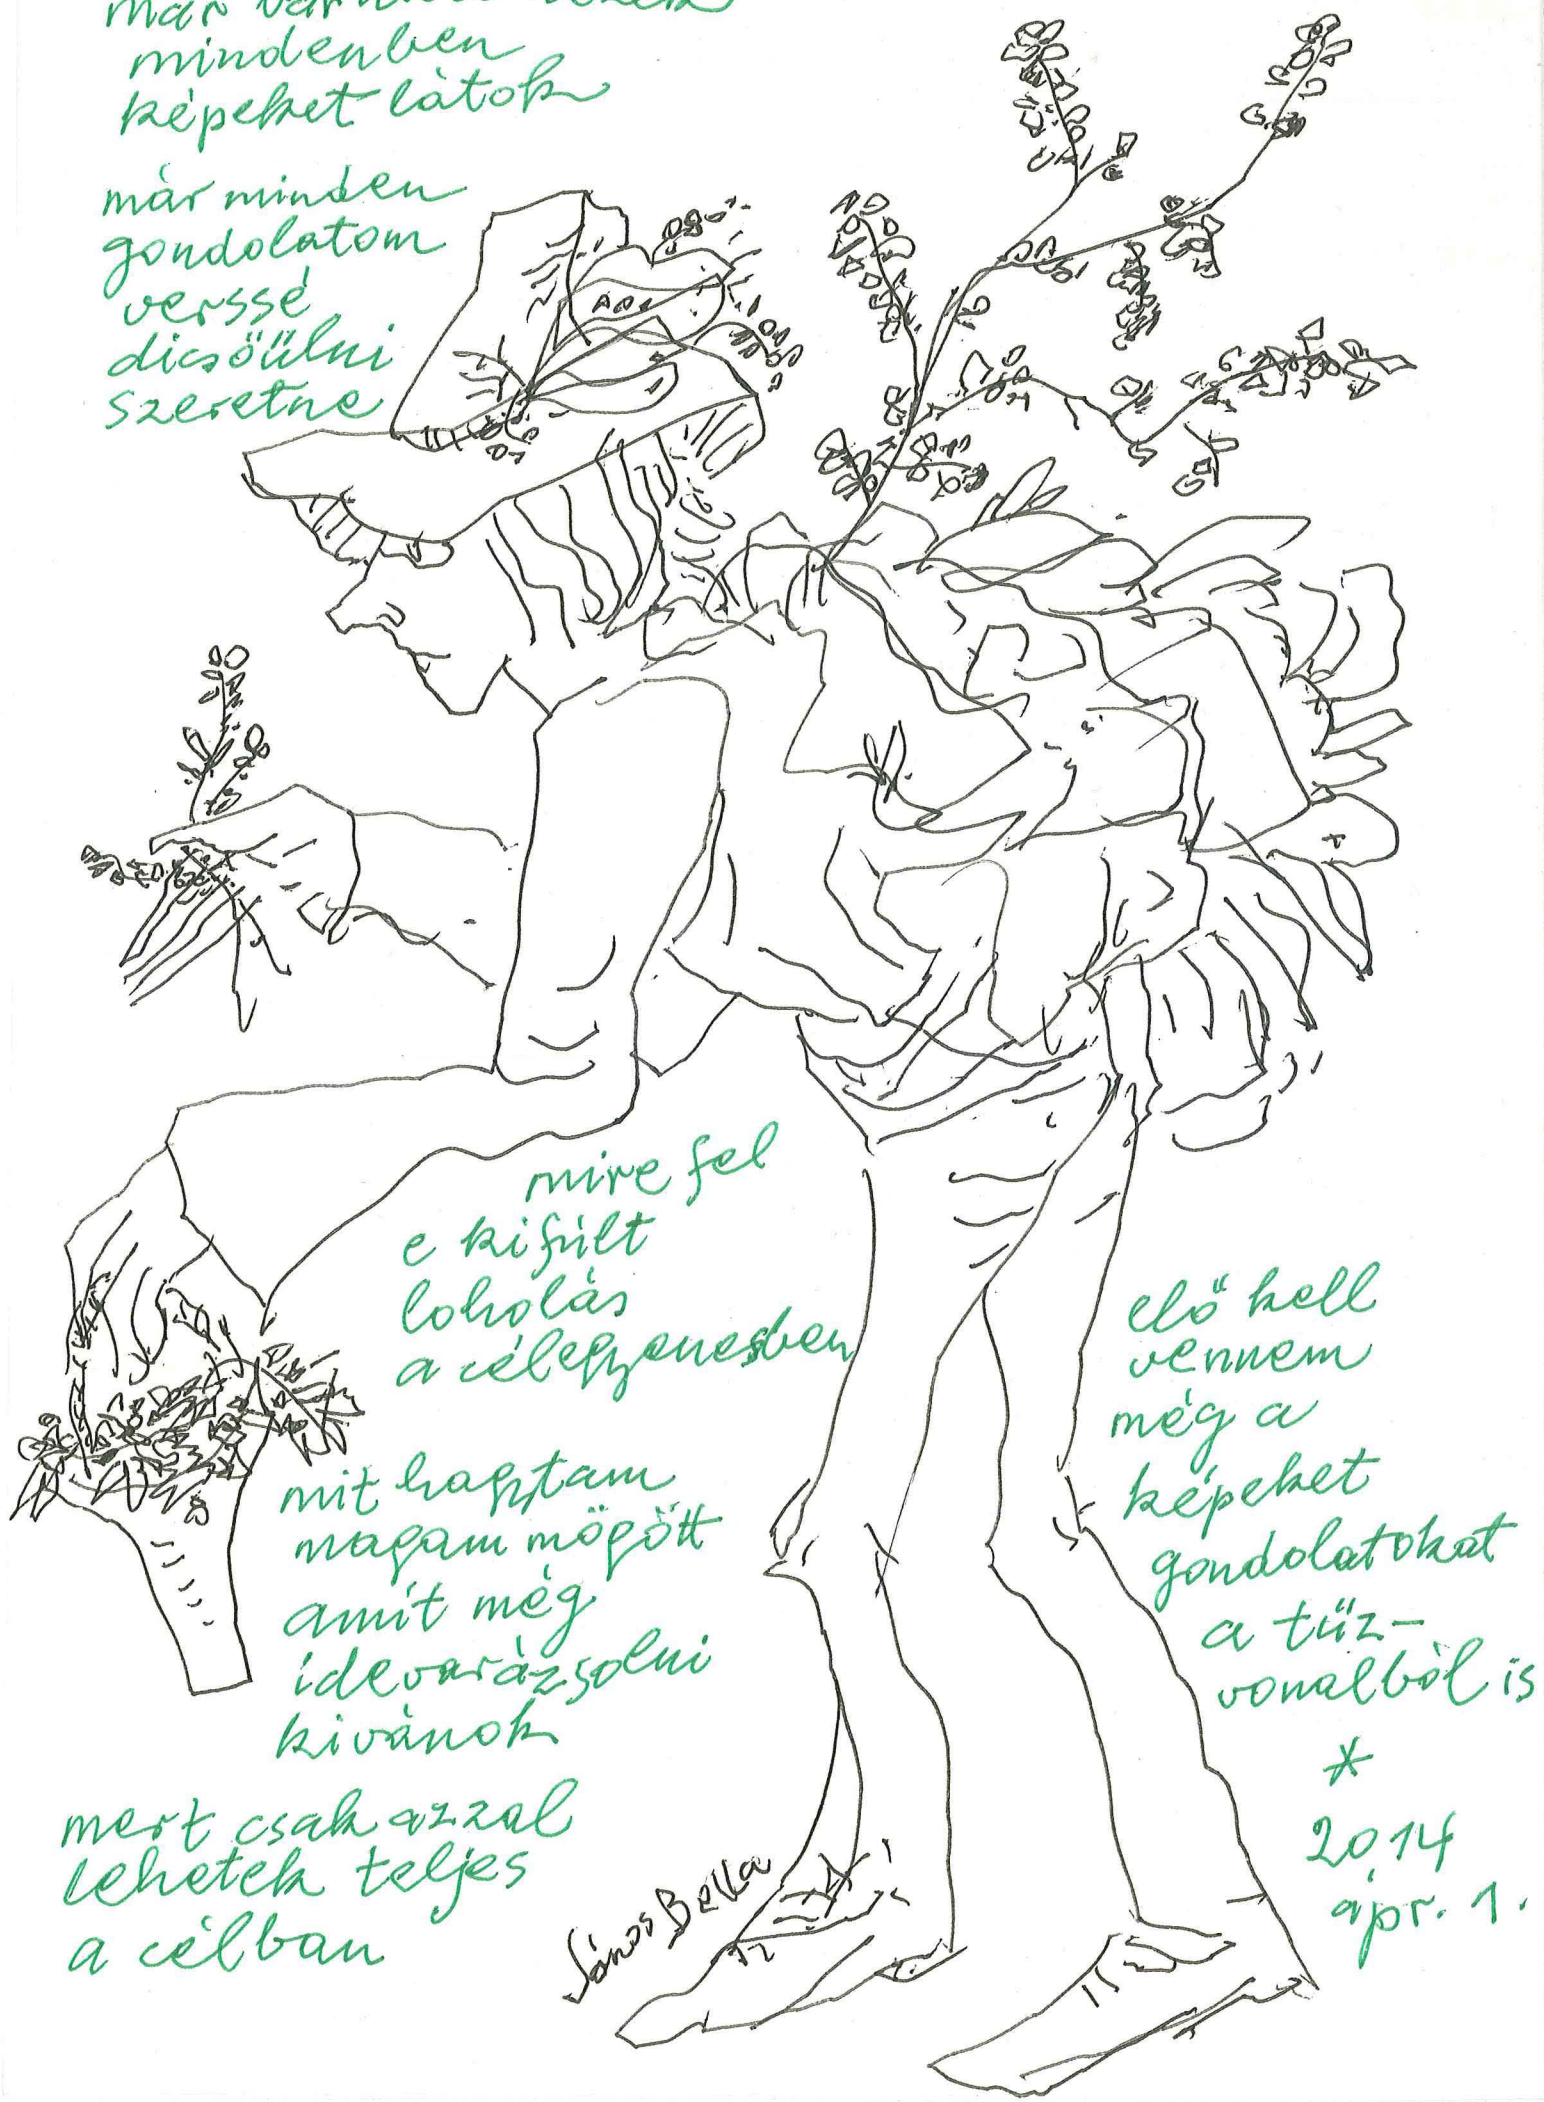 már
mindenben
képeket látok
már minden
gondolatom
verssé
dicsőülni
szeretne
mire fel
e kifúlt
loholás
a célegyenesben
mit hagytam
magam mögött
amit még
idevarázsolni
kivánok
mert csak azzal
lehetek teljes
a célban
elő kell
vennem
még a
képeket
gondolatokat
a tűz-
vonalból is
*
2014
ápr. 1.
Bella